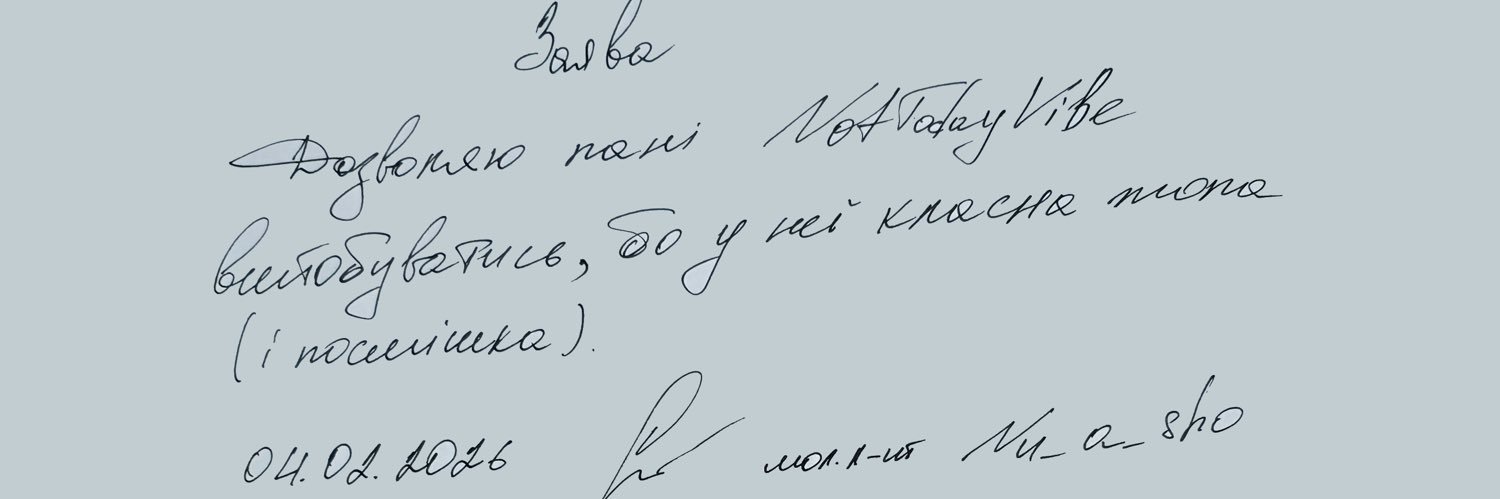 Заява
Дозволяю пані NotTodayVibe
виї*обуватись, бо у неї класна попа
(і посмішка).
04.02.2026 мол. л-нт Nu_a_sho